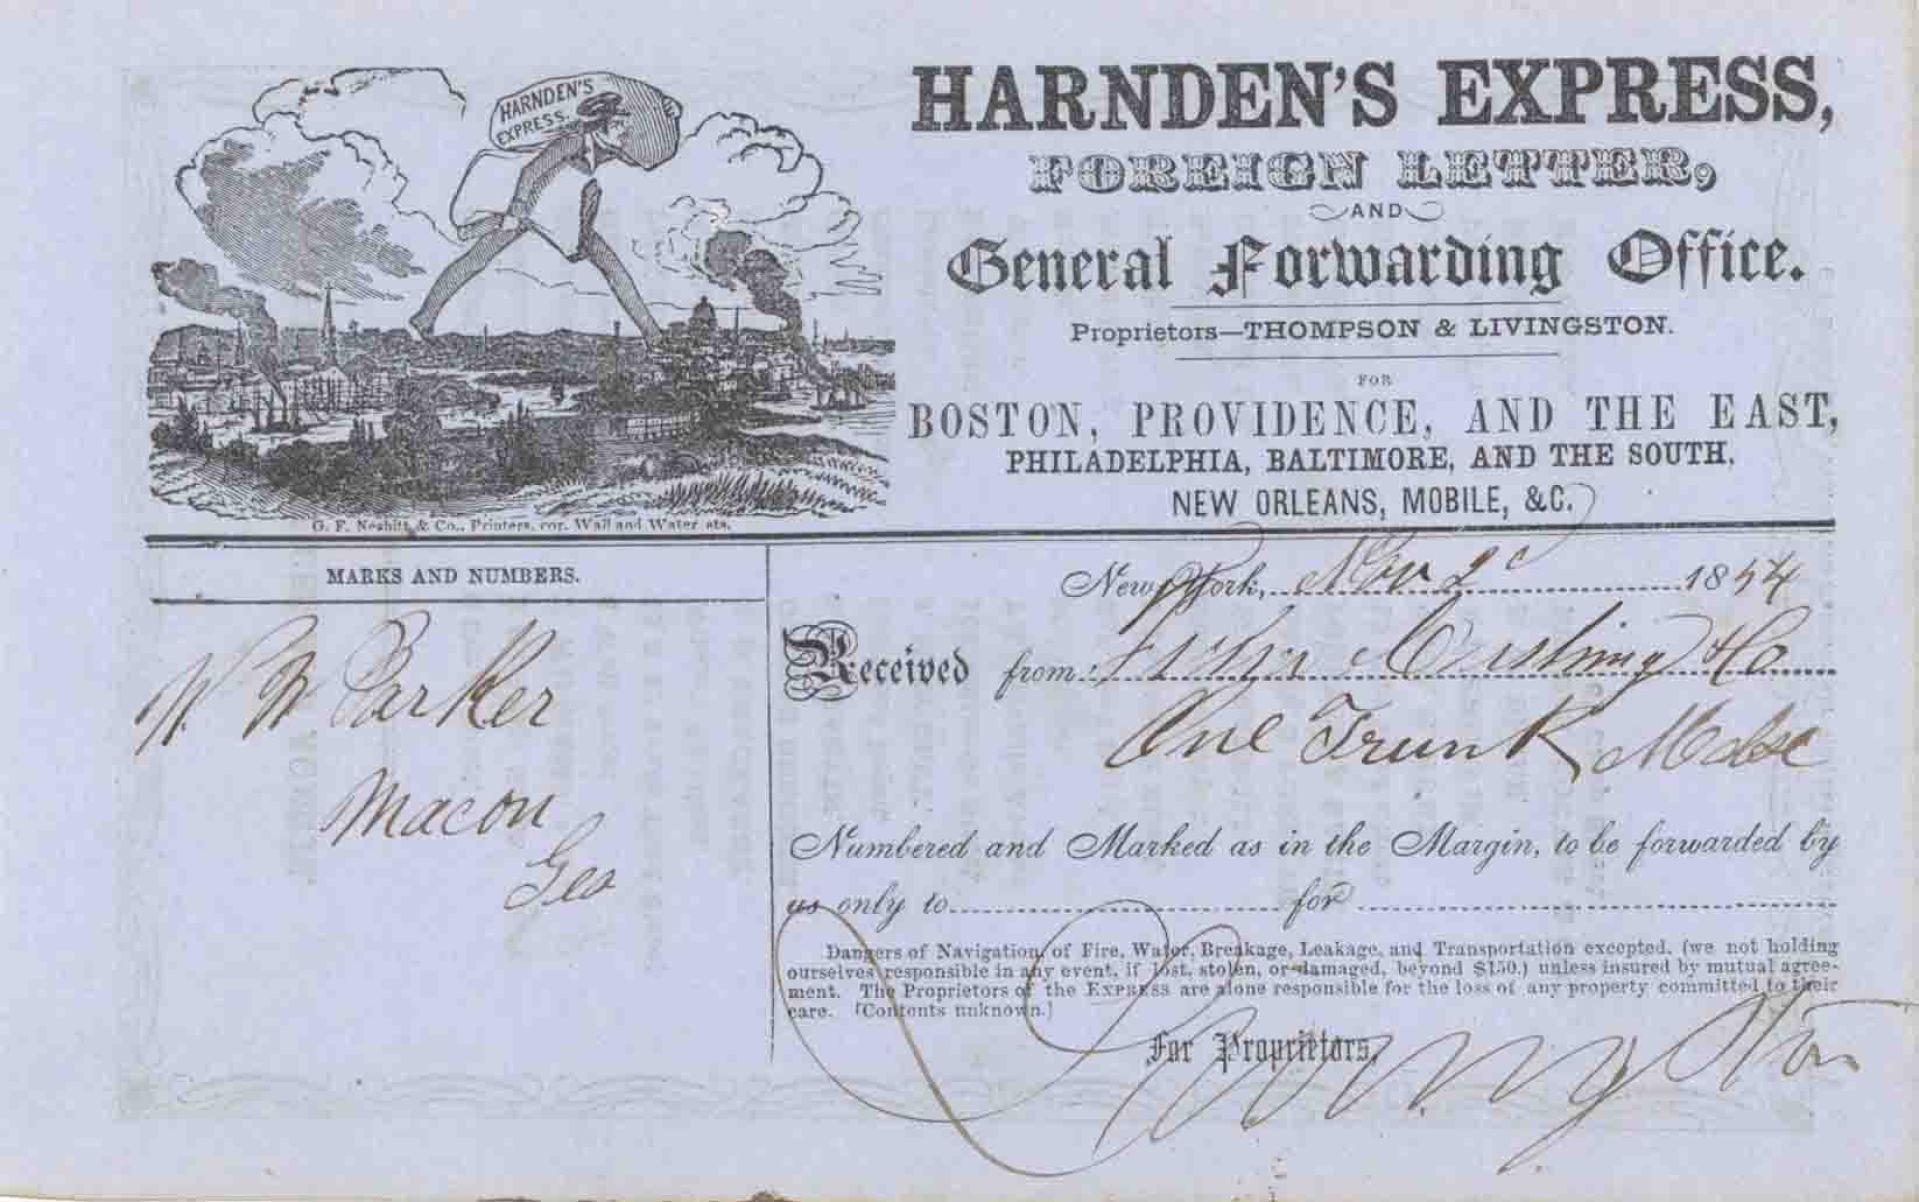 HARNDEN'S
EXPRESS.
HARNDEN'S EXPRESS,
FOREIGN LETTER,
AND
General Forwarding Office.
Proprietors—THOMPSON & LIVINGSTON.
FOR
BOSTON, PROVIDENCE, AND THE EAST,
PHILADELPHIA, BALTIMORE, AND THE SOUTH,
NEW ORLEANS, MOBILE, &C.
G. F. Nesbitt & Co., Printers, cor. Wall and Water sts.
MARKS AND NUMBERS.
W. W Parker
Macon
Geo
New York, Nov 2 1854
Received from Cushing & Co
One Trunk Mdse
Numbered and Marked as in the Margin, to be forwarded by
us only to for
Dangers of Navigation, of Fire, Water, Breakage, Leakage, and Transportation excepted, (we not holding
ourselves responsible in any event, if lost, stolen, or damaged, beyond $150,) unless insured by mutual agree-
ment. The Proprietors of the EXPRESS are alone responsible for the loss of any property committed to their
care. [Contents unknown.]
For Proprietors,